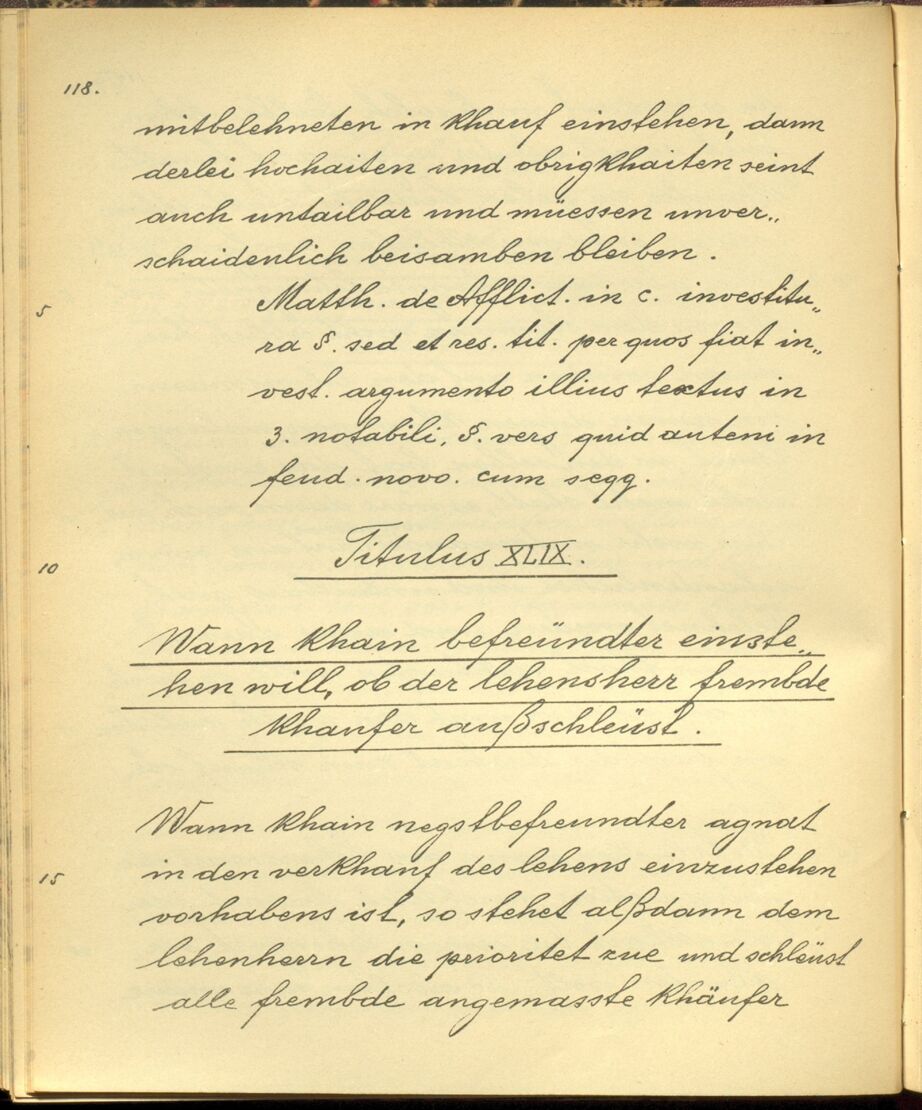 118.
mitbelehneten in khauf einstehen, dann
derlei hochaiten und obrigkhaiten seint
auch untailbar und müessen unver„
schaidenlich beisamben bleiben.
5
Matth. de Afflict. in c. investitu„
ra §. sed et res. tit. per quos fiat in„
vest. argumento illius textus in
3. notabili, §. vers quid auteni in
feud. novo. cum segg.
10
Titulus XLIX.
Wann khain befreündter einste„
hen will, ob der lehensherr frembde
khaufer außschleüst.
Wann khain negstbefreundter agnat
15
in den verkhauf des lehens einzustehen
vorhabens ist, so stehet alßdann dem
lehenherrn die prioritet zue und schleüst
alle frembde angemasste khäufer